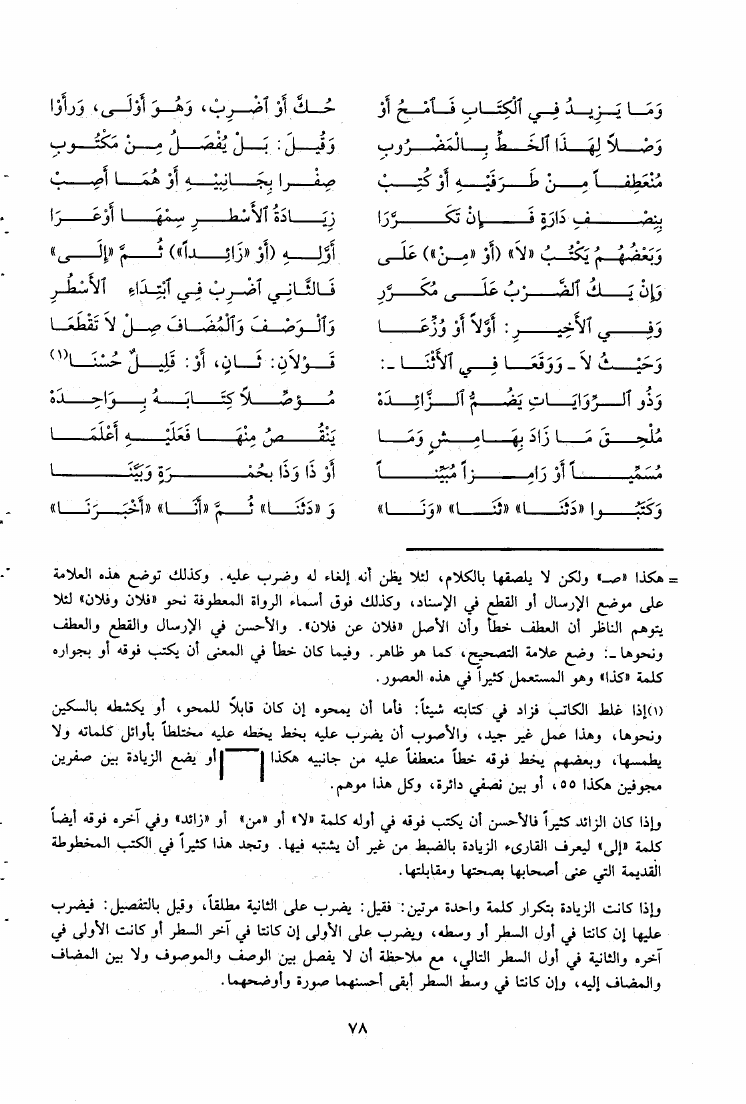 وَمَا يَزِيدُ فِي ٱلْكِتَابِ فَٱمْحُ أَوْ حُكَّ أَوِ ٱضْرِبْ، وَهُوَ أَوْلَى، وَرَأَوْا
وَصْلاً لِهَذَا ٱلخَطِّ بِالْمَضْرُوبِ وَقِيلَ: بَلْ يُفْصَلُ مِنْ مَكْتُوبِ
مُنْعَطِفاً مِنْ طَرَفَيْهِ أَوْ كُتِبْ صِفْرا بِجَانِبَيْهِ أَوْ هُمَا أَصِبْ
بِنِصْفِ دَارَةٍ فَإِنْ تَكَرَّرَا زِيَادَةُ الأَسْطُرِ سِمْهَا أَوْ عَرَا
وَبَعْضُهُمْ يَكْتُبُ «لاَ» (أَوْ «مِنْ») عَلَى أَوَّلِهِ (أَوْ «زَائِداً») ثُمَّ «إِلَى»
وَإِنْ يَكُ الضَّرْبُ عَلَى مُكَرَّرِ فَالثَّانِي ٱضْرِبْ فِي ٱبْتِدَاءِ الأَسْطُرِ
وَفِي الأَخِيرِ: أَوَّلاً أَوْ وُزِّعَا وَٱلْوَصْفَ وَالْمُضَافَ صِلْ لاَ تَقْطَعَا
وَحَيْثُ لاَ - وَوَقَعَا فِي ٱلأَثْنَا -: قَوْلاَنِ: ثَانٍ، أَوْ: قَلِيلٌ حُسْنَا(١)
وَذُو ٱلرِّوَايَاتِ يَضُمُّ ٱلزَّائِدَهْ مُؤَصِّلاً كِتَابَهُ بِوَاحِدَهْ
مُلْحِقَ مَا زَادَ بِهَامِشٍ وَمَا يَنْقُصُ مِنْهَا فَعَلَيْهِ أَعْلَمَا
مُسَمِّياً أَوْ رَامِزاً مُبَيِّناً أَوْ ذَا وَذَا بِحُمْرَةٍ وَبَيَّنَا
وَكَتَبُوا «دَثَنَا» «ثَنَا» «وَنَا» وَ «دَثَنَا» ثُمَّ «أَنَا» «أَخْبَرَنَا»
= هكذا «صـ» ولكن لا يلصقها بالكلام، لئلا يظن أنه إلغاء له وضرب عليه. وكذلك توضع هذه العلامة
على موضع الإرسال أو القطع في الإسناد، وكذلك فوق أسماء الرواة المعطوفة نحو «فلان وفلان» لئلا
يتوهم الناظر أن العطف خطأ وأن الأصل «فلان عن فلان». والأحسن في الإرسال والقطع والعطف
ونحوها -: وضع علامة التصحيح، كما هو ظاهر. وفيما كان خطأ في المعنى أن يكتب فوقه أو بجواره
كلمة «كذا» وهو المستعمل كثيراً في هذه العصور.
(١)إذا غلط الكاتب فزاد في كتابته شيئاً: فأما أن يمحوه إن كان قابلاً للمحو، أو يكشطه بالسكين
ونحوها، وهذا عمل غير جيد، والأصوب أن يضرب عليه بخط يخطه عليه مختلطاً بأوائل كلماته ولا
يطمسها، وبعضهم يخط فوقه خطاً منعطفاً عليه من جانبيه هكذا أو يضع الزيادة بين صفرين
مجوفين هكذا ٥٥، أو بين نصفي دائرة، وكل هذا موهم.
وإذا كان الزائد كثيراً فالأحسن أن يكتب فوقه في أوله كلمة «لا» أو «من» أو «زائد» وفي آخره فوقه أيضاً
كلمة «إلى» ليعرف القارىء الزيادة بالضبط من غير أن يشتبه فيها. وتجد هذا كثيراً في الكتب المخطوطة
القديمة التي عنى أصحابها بصحتها ومقابلتها.
وإذا كانت الزيادة بتكرار كلمة واحدة مرتين: فقيل: يضرب على الثانية مطلقاً، وقيل بالتفصيل: فيضرب
عليها إن كانتا في أول السطر أو وسطه، ويضرب على الأولى إن كانتا في آخر السطر أو كانت الأولى في
آخره والثانية في أول السطر التالي، مع ملاحظة أن لا يفصل بين الوصف والموصوف ولا بين المضاف
والمضاف إليه، وإن كانتا في وسط السطر أبقى أحسنهما صورة وأوضحهما.
٧٨